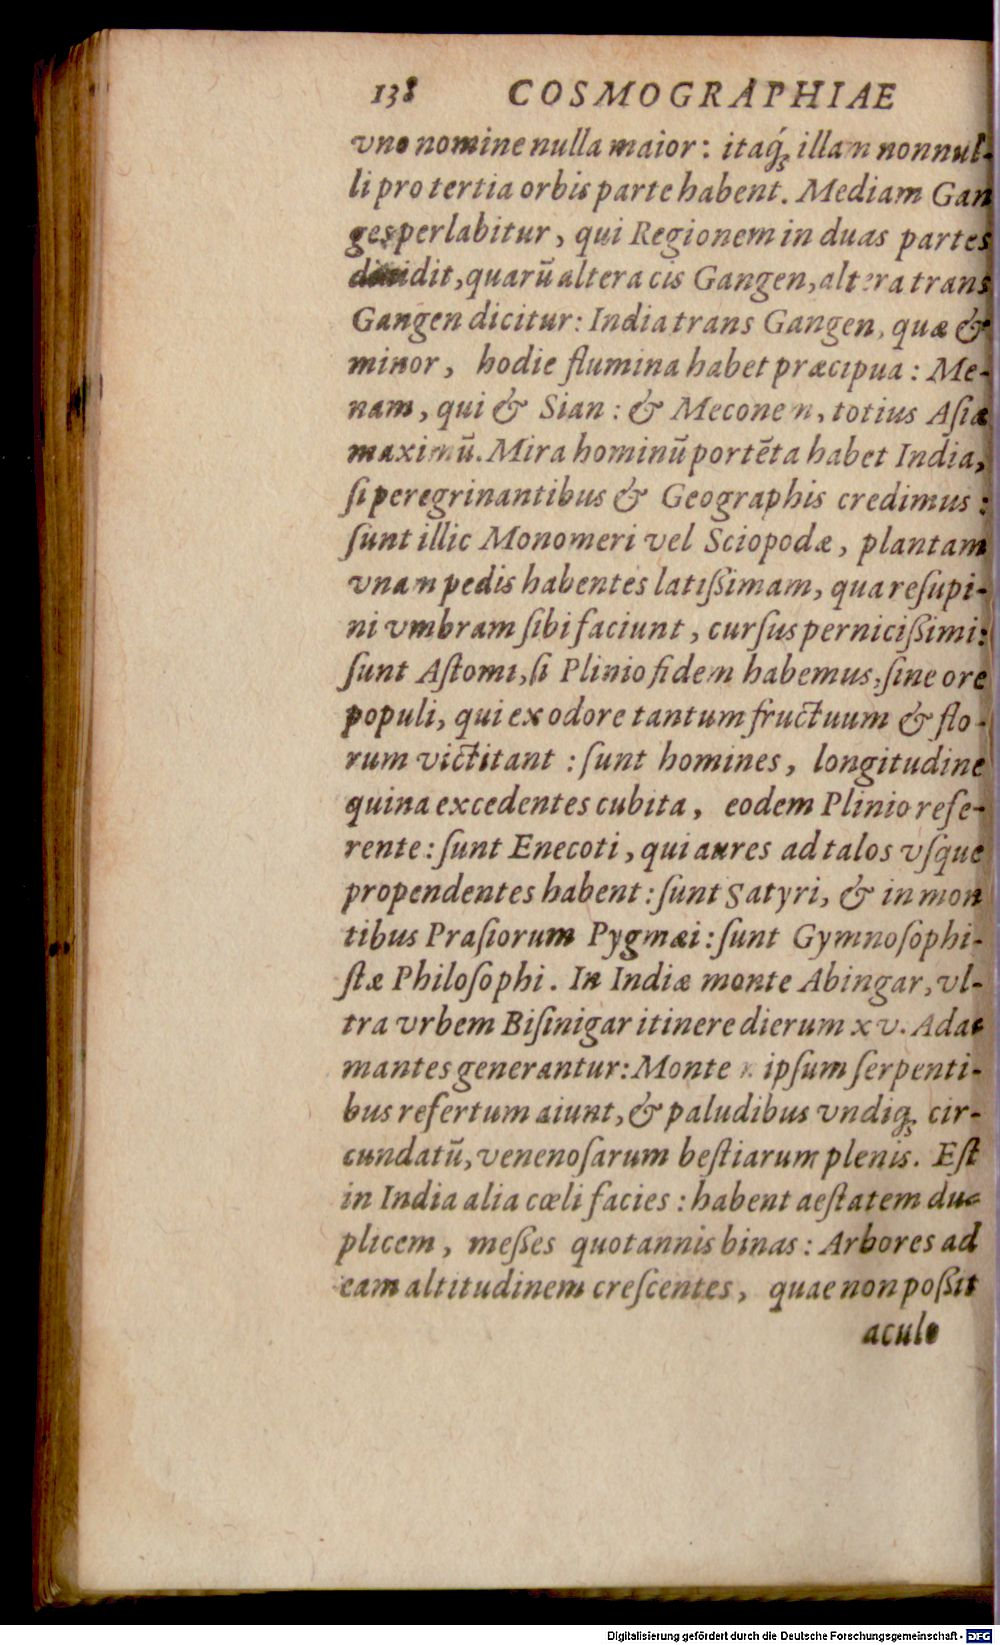 138 COSMOGRAPHIAE
vno nomine nulla maior: itaq́ꝫ illam nonnul-
li pro tertia orbis parte habent. Mediam Gan
ges perlabitur, qui Regionem in duas partes
diuidit, quarũ altera cis Gangen, altera trans
Gangen dicitur: India trans Gangen, quæ &
minor, hodie flumina habet præcipua: Me-
nam, qui & Sian: & Meconem, totius Aſiæ
maximũ. Mira hominũ portẽta habet India,
ſi peregrinantibus & Geographis credimus:
ſunt illic Monomeri vel Sciopodæ, plantam
vnam pedis habentes latiſſimam, qua reſupi-
ni vmbram ſibi faciunt, curſus perniciſſimi:
ſunt Aſtomi, ſi Plinio fidem habemus, ſine ore
populi, qui ex odore tantum fructuum & flo-
rum victitant: ſunt homines, longitudine
quina excedentes cubita, eodem Plinio refe-
rente: ſunt Enecoti, qui aures ad talos vſque
propendentes habent: ſunt Satyri, & in mon
tibus Praſiorum Pygmæi: ſunt Gymnoſophi-
ſtæ Philoſophi. In Indiæ monte Abingar, vl-
tra vrbem Biſinigar itinere dierum xv. Ada-
mantes generantur: Montem ipſum ſerpenti-
bus refertum aiunt, & paludibus vndiqꝫ cir-
cundatũ, venenoſarum beſtiarum plenis. Eſt
in India alia cœli facies: habent aeſtatem du-
plicem, meſſes quotannis binas: Arbores ad
eam altitudinem creſcentes, quae non poſſit
aculo
Digitalisierung gefördert durch die Deutsche Forschungsgemeinschaft - DFG